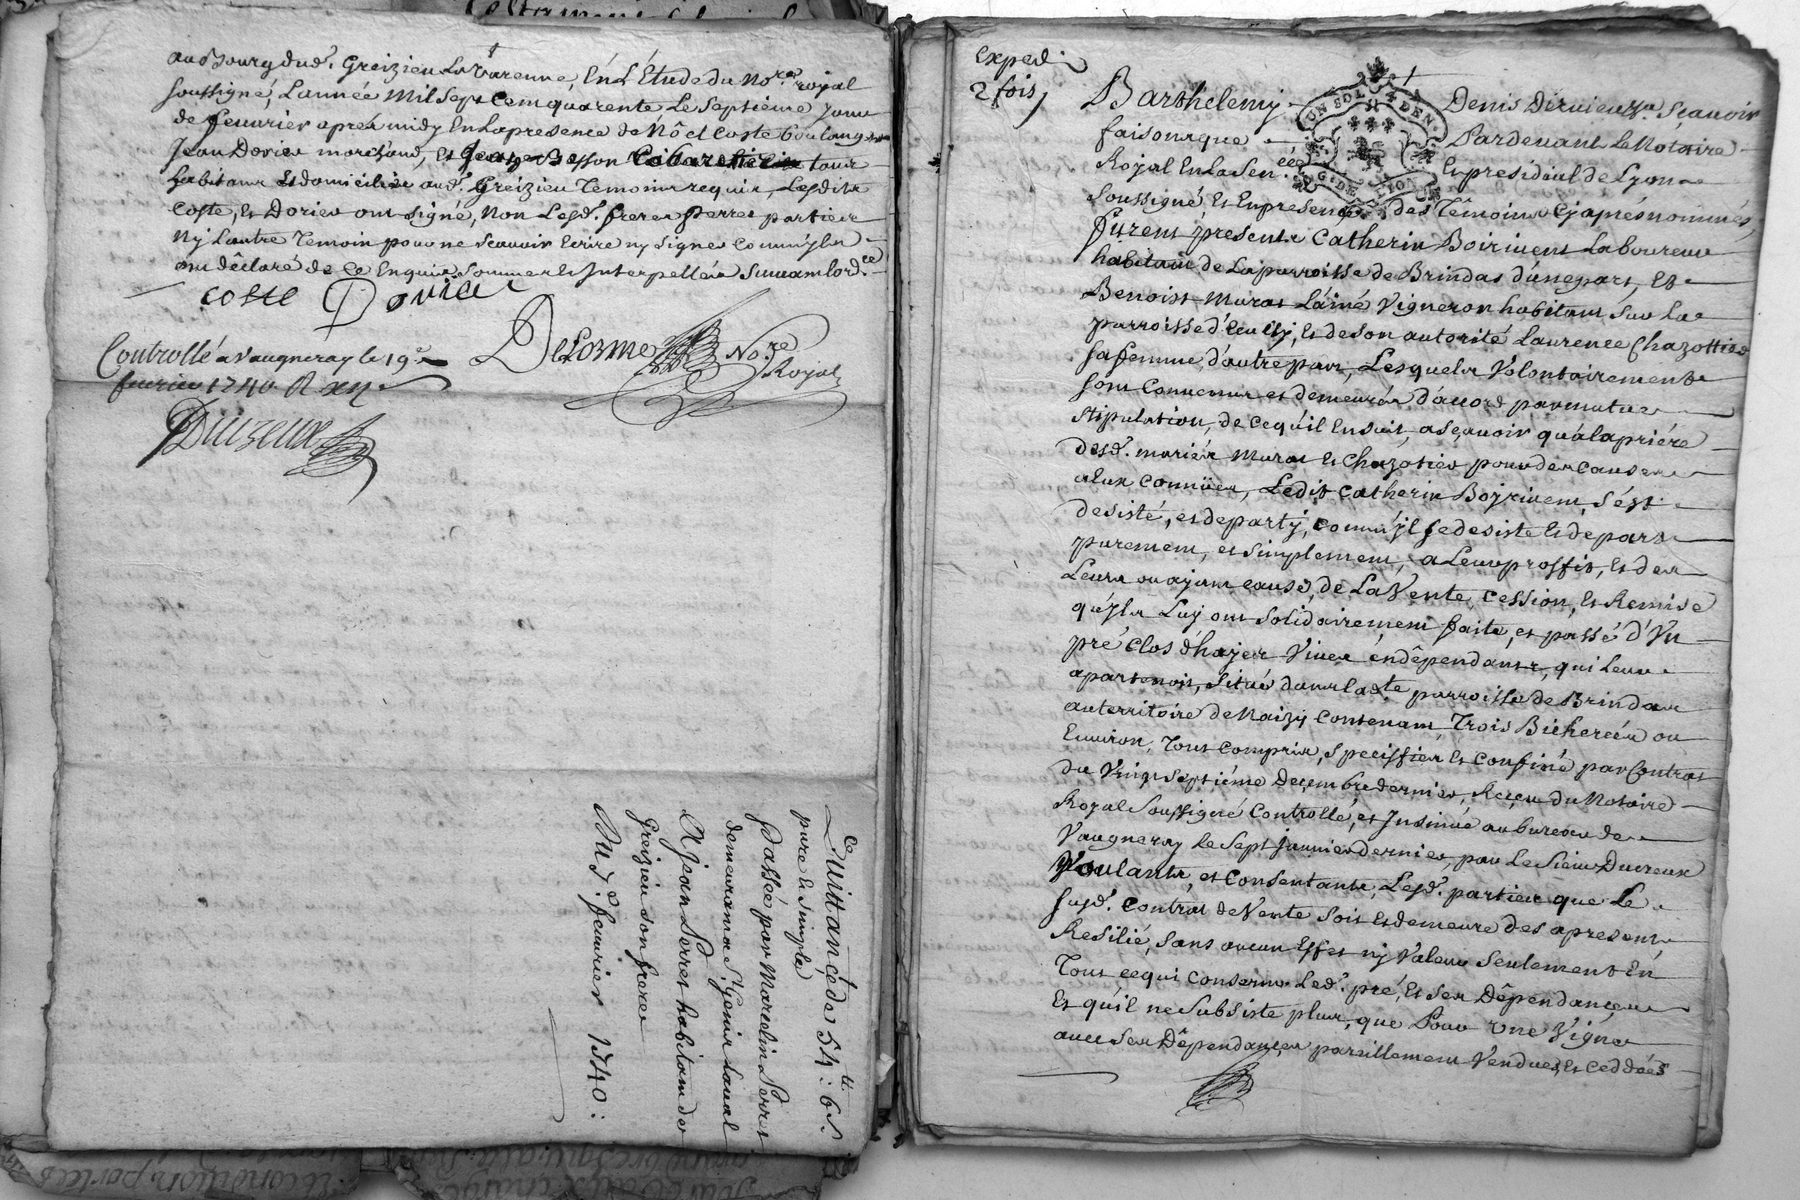 au Bourg dud. Greizieu La Varenne, En L'Etude du No.re royal
soussigné, L'année Mil Sept Cent quarente Le Septieme Jour
de feuvrier aprés midy En La presence de Nöel Coste boulanger
Jean Dorier marchand, et Besson Cabaretier tour
habitans et domiciliés aud. Greizieu Temoins requis, Lesdits
Coste, Et Dorier ont signé, Non Lesd. freres Perret parties
Ny L'autre Temoin pour ne Scavoir Ecrire ny signer Comm'yls
ont déclaré de Ce Enquis, Sommés Et Interpellés Suivant lord.ce
Coste Dorier
DeLorme No.re Royal
Controllé a Vaugneray le 19e
feuvrier 1740 R xii s
Ducreux
Quittance de 54tt: 6s.
pure Et Simple
Passée par Marcelin Perret
demeurant a St. Genis Laval
A jean Perret habitant de
Greizieu son frere
Du 7e. feuvrier 1740:
Exped.
2 fois
UN SOL 4 DEN.
G. DE LION
Barthelemy Denis Dervieux Scavoir
faisons que Pardevant Le Notaire
Royal En La Sen.ée Et presidial de Lyon
Soussigné, Et En presence des Témoins Cy aprés nommés,
furent presents Catherin Boirivent Laboureur
habitant de La parroisse de Brindas d'une part, Et
Benoist Murat L'ainé Vigneron habitant Sur La
parroisse d'Ecully, Et de son autorité Laurence Chazottier
sa femme, d'autre part, Lesquels Volontairement
sont Convenus et demeurés d'accord par mutuere
Stipulation, de Ce qu'il Ensuit, a Scavoir qu'a la priére
desd. mariés Murat Et Chazotier pour des Causes
a Eux Connües, Ledit Catherin Boyrivent, S'est
desisté, et departy, Comm'yl se desiste Et depart
purement, et simplement, a Leur proffit, Et des
Leurs ou ayant Cause, de La Vente, Cession, Et Remise
qu'yls Luy ont Solidairement faite, et passé d'Un
pré Clos d'hayes Vives en dépendants, qui Leur
apartenoit, Situé dans lad.te parroisse de Brindas
au territoire de Naizy Contenant Trois Bicherées ou
Environ, Tout Compris, Speciffié Et Confiné par Contrat
du Vingt Septiéme Décembre dernier, Reçeu du Notaire
Royal Soussigné Controllé, et Insinué au bureau de
Vaugneray le Sept janvier dernier, par Le Sieur Ducreux
Voulants, et Consentants, Lesd. parties que Le
susd. Contrat de Vente Soit Et demeure des apresent
Resilié, Sans aucun Effet ny Valeur Seulement En
Tout ce qui Conserne Led. pré, Et Ses Dépendances
Et qu'il ne Subsiste plus, que Pour Une Vigne
avec Ses Dépendances pareillement Vendues, Et Ceddées